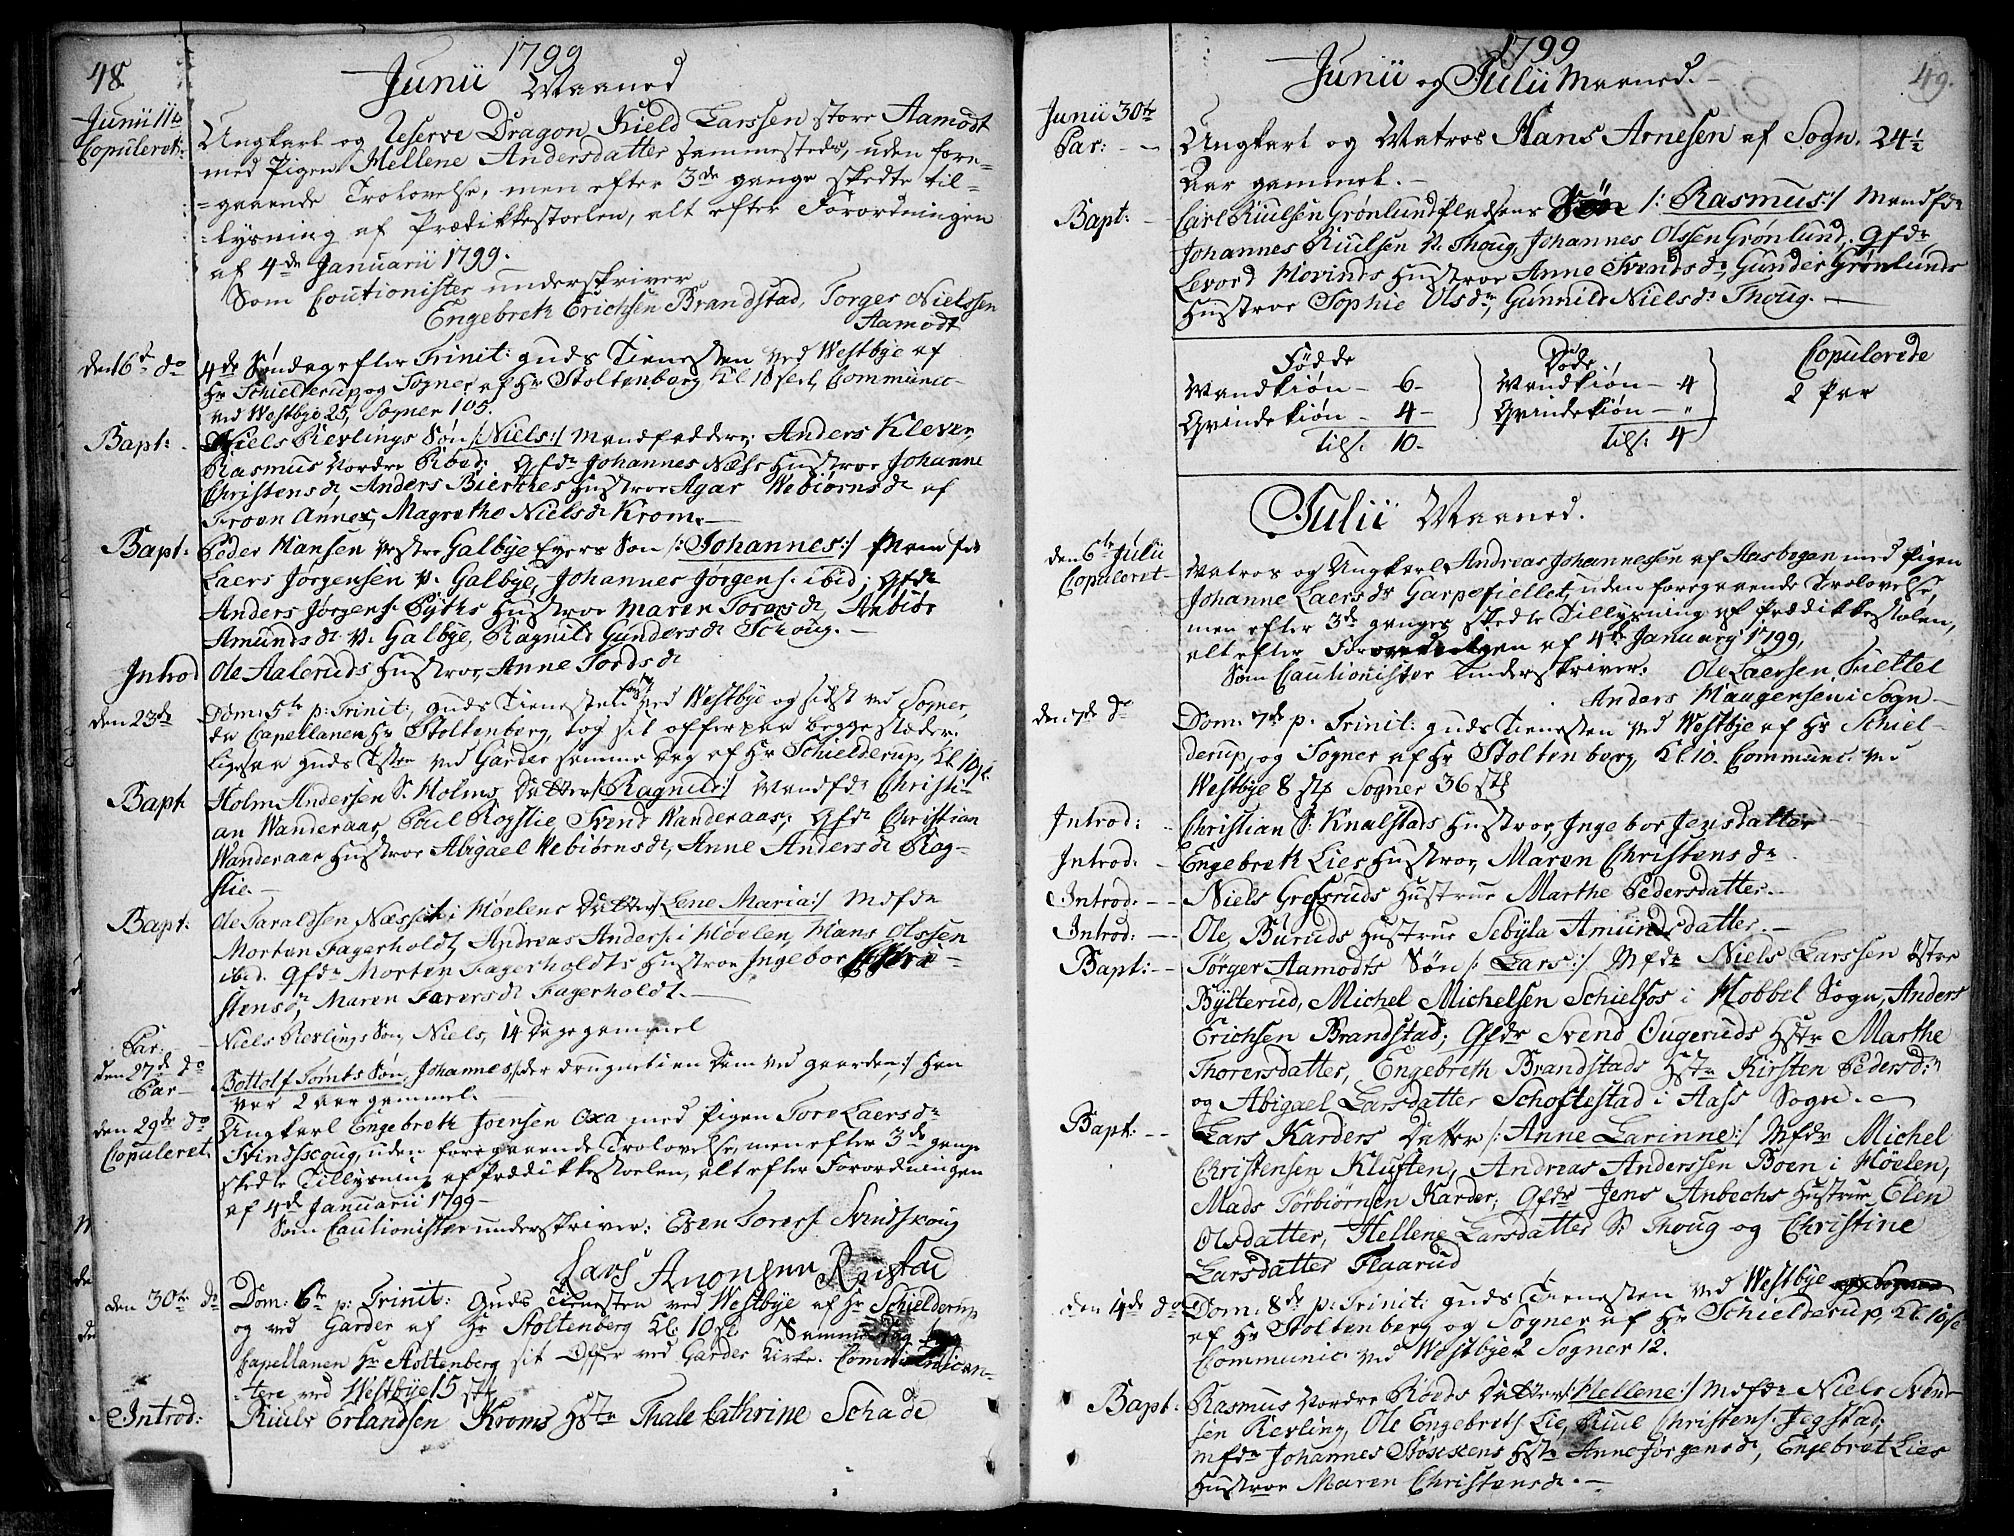 48.
1799
Junii Maaned
Junii 11te
Copuleret:
Ungkarl og Reserve Dragon Kield Larssen store Aamodt
med Pigen Hellene Andersdatter sammesteds, uden fore-
-gaaende Trolovelse, men efter 3de gange skedte til-
-lysning af Prædikkestoelen, alt efter Forordningen
af 4de Januarii 1799.
Som Coutionister underskriver
Engebreth Erichsen Brandstad, Torger Nielssen
Aamodt
den 16de do
4de Søndag efter Trinit: guds Tienesten ved Westbye af
Hr Schielderup, og Sogner af Hr Stoltenberg Kl 10 sl, Communic-
ved Westbye 25, Sogner 105.
Bapt:
Niels Revlings Søn /:Niels:/ Mandfaddere, Anders Klever,
Rasmus Nordre Røed; Qfdr Johannes Næss Hustroe Johanne
Christensdr, Anders Bierkes Hustroe Agar Webiørnsdr af
Froen Annex, Magrethe Nielsdr Krom.
Bapt:
Peder Hansen Westre Galbye Eyers Søn /:Johannes:/ Mfdr
Laers Jørgensen N. Galbye, Johannes Jørgens: ibid; Qfdr
Anders Jørgens: Hustroe Maren Toresdr, Anbiør
Amundsdr N. Galbye, Ragnild Gundersdr Schoug.
Introd
Ole Aaleruds Hustroe, Anne Tordsdr
den 23de
Dom: 5te p: Trinit: guds Tienesten først ved Westbye og sidst ved Sogner,
da Capellanen Hr Stoltenberg, tog sit offer paa begge stæder.
Ligesaa Guds Tiesten ved Garder samme dag af Hr Schielderup, Kl 10 sl.
Bapt
Holm Andersen S. Holms Datter /:Ragnild:/ Mandfdr Christi-
an Wanderaas, Poul Rogslie Svend Wanderaas; Qfdr Christian
Wanderaas Hustroe Abigael Webiørnsdr, Anne Andersdr Rog-
slie.
Bapt:
Ole Taraldsen Næsset i Høelens Datter /:Lene Maria:/ Mfdr
Morten Fagerholdt, Andreas Anders: i Høelen, Hans Olssen
ibid. Qfdr Morten Fagerholdts Hustroe Ingebor Chri-
stensdr, Maren Faversdr Fagerholdt.
Par:
Niels Revlings Søn, Niels, 14 Dage gammel
den 27de do
Par
Bottolf Tomts Søn, Johannes, /:der druknet i en Dam ved gaarden,:/ han
var 2 aar gammel.
den 29de do
Copuleret.
Ungkarl Engebreth Joensen Oxa med Pigen Tore Laersdr
Svindskoug, uden foregaaende Trolovelse, men efter 3de gange
skedte Tillysning af Prædikkestoelen, alt efter Forordningen
af 4de Januarii 1799
Som Cautionister underskriver: Even Torers: Svindskoug
Lars Anonsen Rustad
den 30te do
Dom: 6te p: Trinit: Guds Tienesten ved Westbye af Hr Schielderup
og ved Garder af Hr Stoltenberg Kl: 10 sl. Samme Dag tog
Capellanen Hr Stoltenberg sit Offer ved Garder Kirke. Communican-
-tere ved Westbye 15 stk
Introd:
Riuls Erlandsen Kroms Hstr Thale Cathrine Schade
49.
1799
Junii og Julii Maaned.
Junii 30te
Par:
Ungkarl og Matros Hans Arnesen af Sogn, 24½
Aar gammel.
Bapt:
Carl Riulsen Grønlundpladsens Søn /:Rasmus:/ Mandfdr
Johannes Riulsen N. Thoug, Johannes Olssen Grønlund, Qfdr
Levord Hovinds Hustroe Anne Svendsdr, Gunder Grønlunds
Hustroe Sophie Olsdr, Gunnild Nielsdr Thoug.
Fødde
Mandkiøn - 6-
Qvindekiøn - 4-
Tils: 10-
Døde
Mandkiøn - 4
Qvindekiøn - "
Tils: 4
Copulerede
2 Par
Julii Maaned.
den 6te Julii
Copuleret
Matros og Ungkarl Andreas Johannessen af Aasbogen med Pigen
Johanne Laersdr Garpefiellet, uden foregaaende Trolovelse,
men efter 3de ganges skedte Tillysning af Prædikkestolen,
alt efter Forordningen af 4de January 1799,
Som Cautionister Underskriver. Ole Laersen Fieltet
Anders Haagensen i Sogn
den 7de do
Dom: 7de p. Trinit: guds Tienesten ved Westbye af Hr Schiel-
derup, og Sogner af Hr Stoltenberg, Kl. 10. Communi: ved
Westbye 8 stk Sogner 36 stk
Introd:
Christian S: Knalstads Hustroe, Ingebor Jensdatter
Introd:
Engebreth Lies Hustroe, Maren Christensdr
Introd:
Niels Grefsruds Hustrue Marthe Pedersdatter.
Introd:
Ole Buruds Hustrue Sebÿla Amundsdatter.
Bapt:
Tørger Aamodts Søn /:Lars:/ Mfdr Niels Larssen østre
Bÿlterud, Michel Michelsen Schielfos i Hobbel Sogn, Anders
Erichsen Brandstad; Qfdr Svend Ougeruds Hstr Marthe
Thorersdatter, Engebreth Brandstads Hstr Kirsten Pedersdr
og Abigael Larsdatter Schoftestad i Aass Sogn.
Bapt:
Lars Karders Datter /:Anne Larinne:/ Mfdr Michel
Christensen Kluften, Andreas Anderssen Boen i Høelen,
Mads Tørbiørnsen Karder; Qfdr Jens Anbechs Hustrue Elen
Olsdatter, Hellene Larsdatter S: Thoug og Christine
Larsdatter Flaarud
den 14de do
Dom: 8de p: Trinit: guds Tienesten ved Westbye
af Hr Stoltenberg og Sogner af Hr Schielderup, Kl. 10 sl
Communic: ved Westbye 2 Sogner 12.
Bapt:
Rasmus Nordre Røeds Datter /:Hellene:/ Mfdr Niels Svend-
sen Revling, Ole Engebreths: Lie, Riul Christens: Jegstad;
mfdr Johannes Hstr Anne Jørgensdr, Engebret Lies
Hustroe Maren Christensdr.